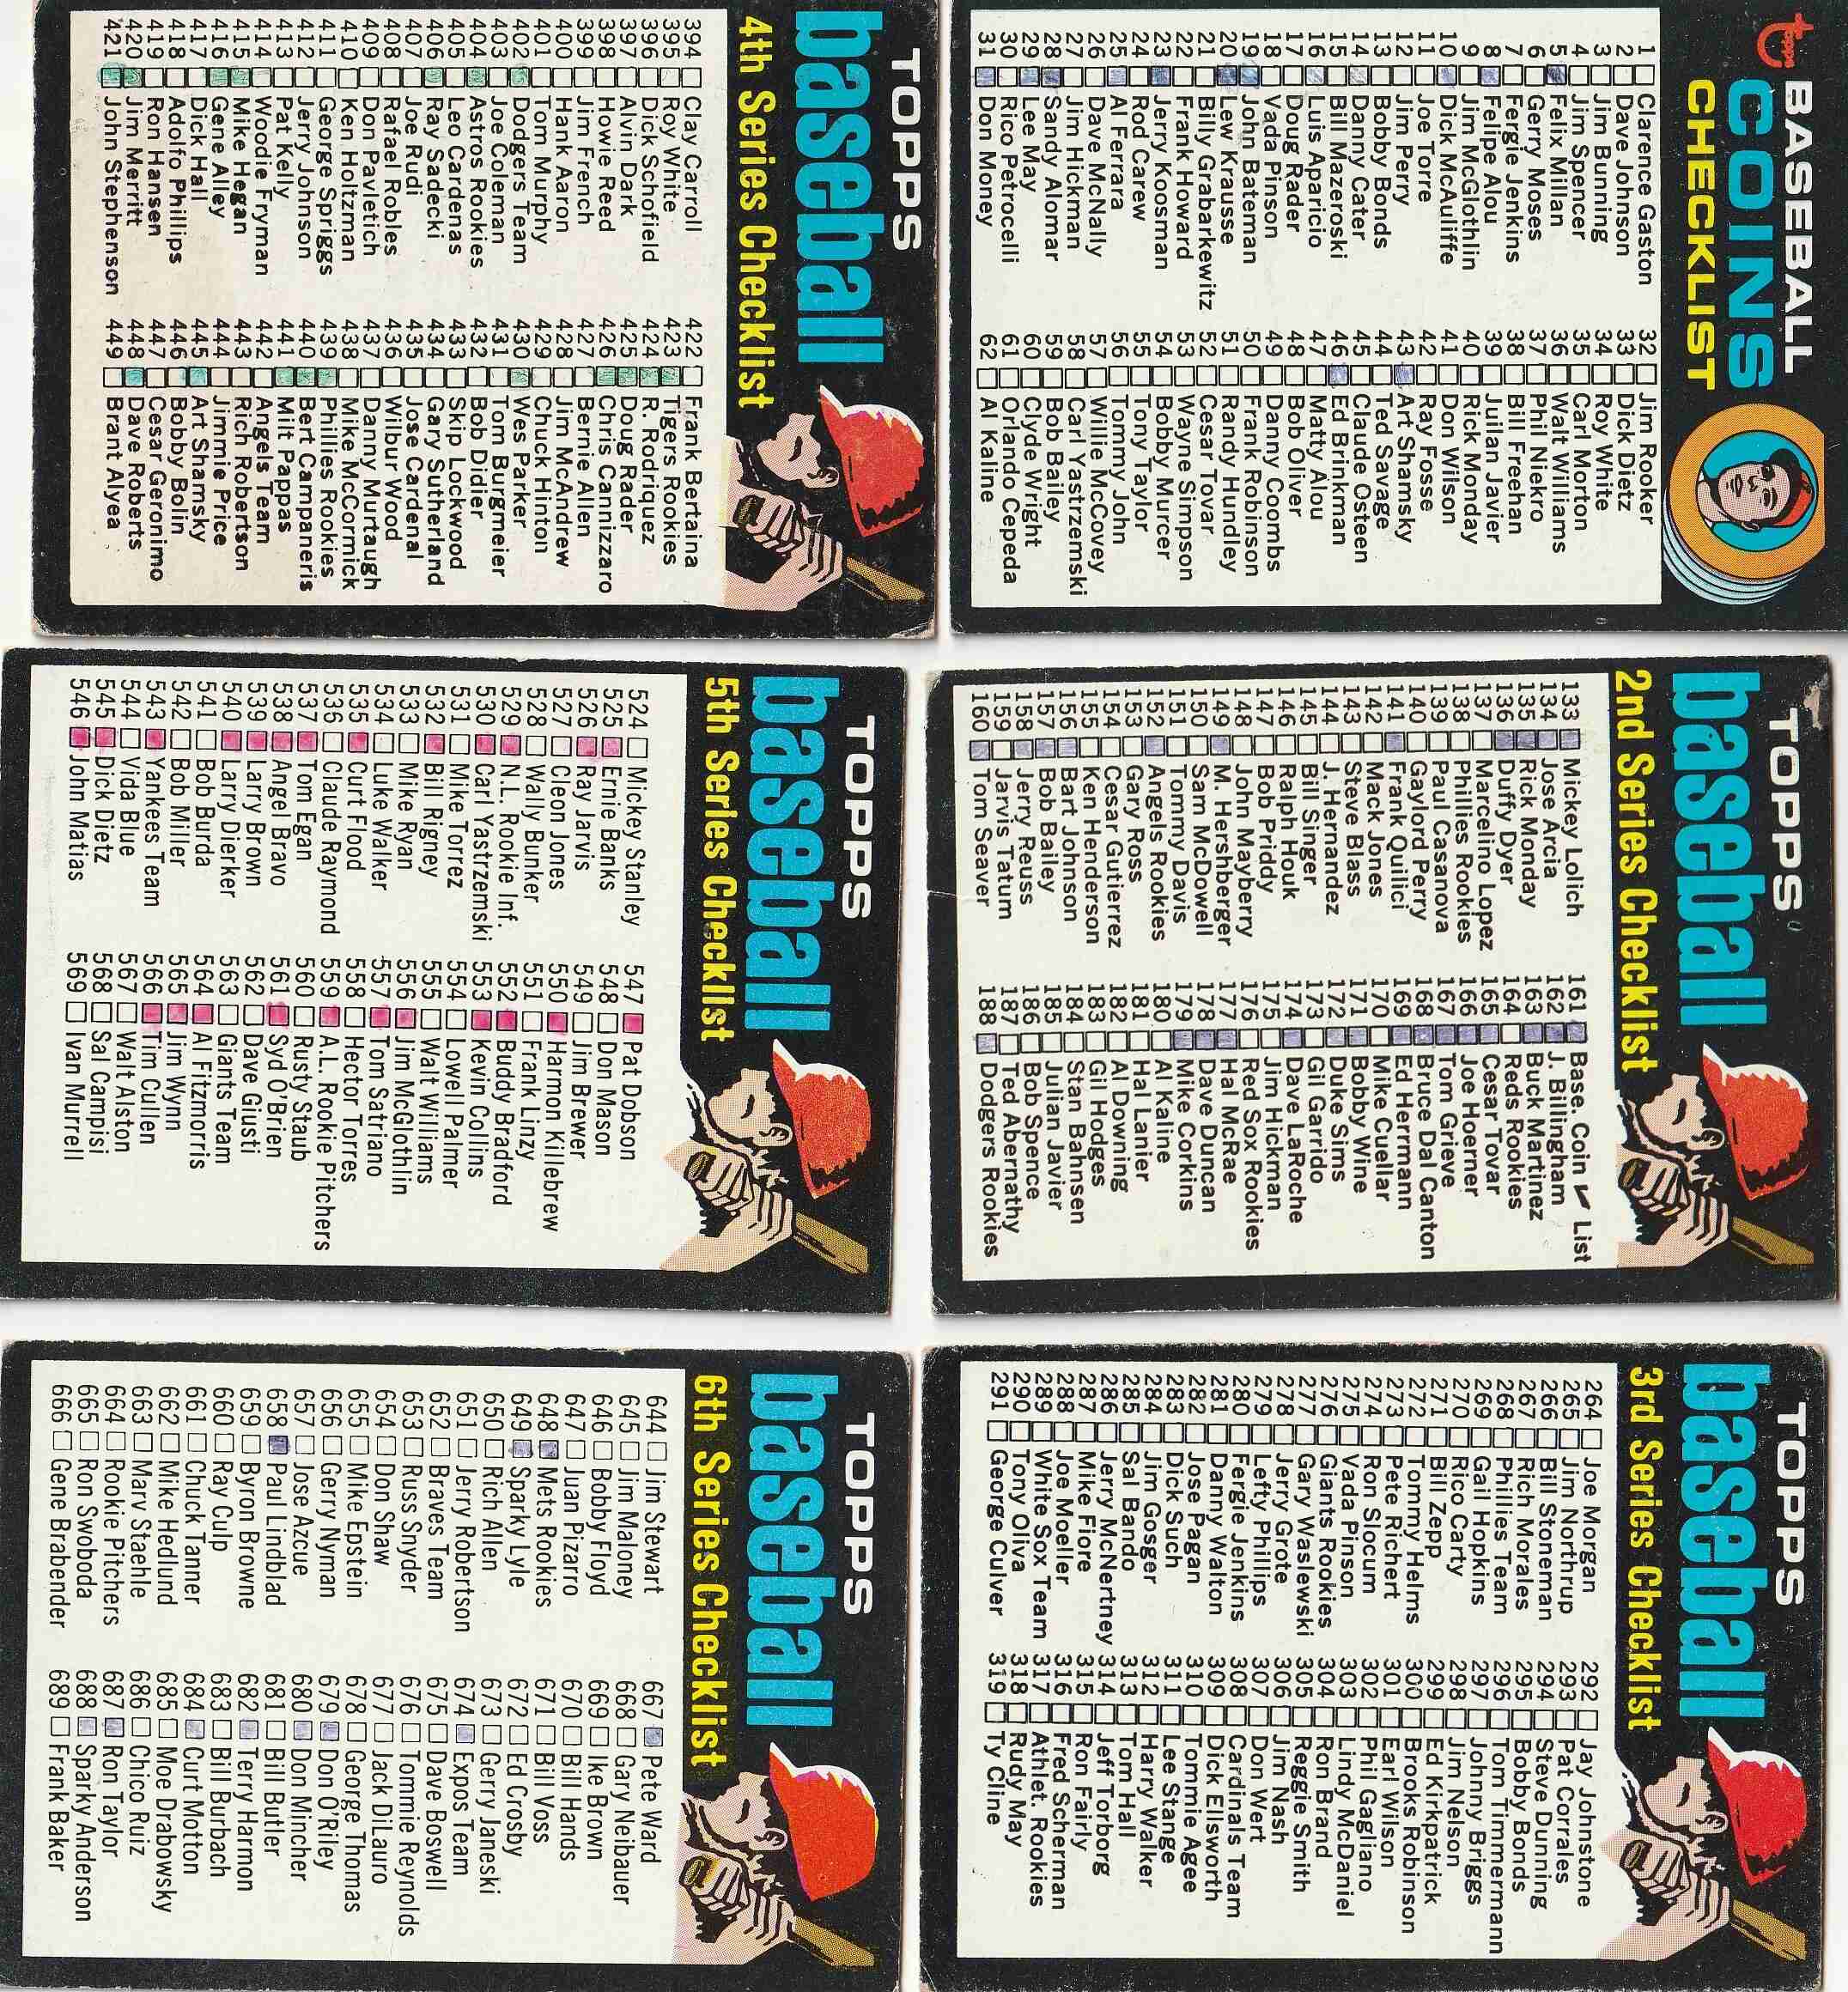 Topps
BASEBALL
COINS
CHECKLIST
1 Clarence Gaston
2 Dave Johnson
3 Jim Bunning
4 Jim Spencer
5 Felix Millan
6 Gerry Moses
7 Fergie Jenkins
8 Felipe Alou
9 Jim McGlothlin
10 Dick McAuliffe
11 Joe Torre
12 Jim Perry
13 Bobby Bonds
14 Danny Cater
15 Bill Mazeroski
16 Luis Aparicio
17 Doug Rader
18 Vada Pinson
19 John Bateman
20 Lew Krausse
21 Billy Grabarkewitz
22 Frank Howard
23 Jerry Koosman
24 Rod Carew
25 Al Ferrara
26 Dave McNally
27 Jim Hickman
28 Sandy Alomar
29 Lee May
30 Rico Petrocelli
31 Don Money
32 Jim Rooker
33 Dick Dietz
34 Roy White
35 Carl Morton
36 Walt Williams
37 Phil Niekro
38 Bill Freehan
39 Juilan Javier
40 Rick Monday
41 Don Wilson
42 Ray Fosse
43 Art Shamsky
44 Ted Savage
45 Claude Osteen
46 Ed Brinkman
47 Matty Alou
48 Bob Oliver
49 Danny Coombs
50 Frank Robinson
51 Randy Hundley
52 Cesar Tovar
53 Wayne Simpson
54 Bobby Murcer
55 Tony Taylor
56 Tommy John
57 Willie McCovey
58 Carl Yastrzemski
59 Bob Bailey
60 Clyde Wright
61 Orlando Cepeda
62 Al Kaline
TOPPS
baseball
2nd Series Checklist
133 Mickey Lolich
134 Jose Arcia
135 Rick Monday
136 Duffy Dyer
137 Marcelino Lopez
138 Phillies Rookies
139 Paul Casanova
140 Gaylord Perry
141 Frank Quilici
142 Mack Jones
143 Steve Blass
144 J. Hernandez
145 Bill Singer
146 Ralph Houk
147 Bob Priddy
148 John Mayberry
149 M. Hershberger
150 Sam McDowell
151 Tommy Davis
152 Angels Rookies
153 Gary Ross
154 Cesar Gutierrez
155 Ken Henderson
156 Bart Johnson
157 Bob Bailey
158 Jerry Reuss
159 Jarvis Tatum
160 Tom Seaver
161 Base. Coin ✔ List
162 J. Billingham
163 Buck Martinez
164 Reds Rookies
165 Cesar Tovar
166 Joe Hoerner
167 Tom Grieve
168 Bruce Dal Canton
169 Ed Herrmann
170 Mike Cuellar
171 Bobby Wine
172 Duke Sims
173 Gil Garrido
174 Dave LaRoche
175 Jim Hickman
176 Red Sox Rookies
177 Hal McRae
178 Dave Duncan
179 Mike Corkins
180 Al Kaline
181 Hal Lanier
182 Al Downing
183 Gil Hodges
184 Stan Bahnsen
185 Julian Javier
186 Bob Spence
187 Ted Abernathy
188 Dodgers Rookies
TOPPS
baseball
3rd Series Checklist
264 Joe Morgan
265 Jim Northrup
266 Bill Stoneman
267 Rich Morales
268 Phillies Team
269 Gail Hopkins
270 Rico Carty
271 Bill Zepp
272 Tommy Helms
273 Pete Richert
274 Ron Slocum
275 Vada Pinson
276 Giants Rookies
277 Gary Waslewski
278 Jerry Grote
279 Lefty Phillips
280 Fergie Jenkins
281 Danny Walton
282 Jose Pagan
283 Dick Such
284 Jim Gosger
285 Sal Bando
286 Jerry McNertney
287 Mike Fiore
288 Joe Moeller
289 White Sox Team
290 Tony Oliva
291 George Culver
292 Jay Johnstone
293 Pat Corrales
294 Steve Dunning
295 Bobby Bonds
296 Tom Timmermann
297 Johnny Briggs
298 Jim Nelson
299 Ed Kirkpatrick
300 Brooks Robinson
301 Earl Wilson
302 Phil Gagliano
303 Lindy McDaniel
304 Ron Brand
305 Reggie Smith
306 Jim Nash
307 Don Wert
308 Cardinals Team
309 Dick Ellsworth
310 Tommie Agee
311 Lee Stange
312 Harry Walker
313 Tom Hall
314 Jeff Torborg
315 Ron Fairly
316 Fred Scherman
317 Athlet. Rookies
318 Rudy May
319 Ty Cline
TOPPS
baseball
4th Series Checklist
394 Clay Carroll
395 Roy White
396 Dick Schofield
397 Alvin Dark
398 Howie Reed
399 Jim French
400 Hank Aaron
401 Tom Murphy
402 Dodgers Team
403 Joe Coleman
404 Astros Rookies
405 Leo Cardenas
406 Ray Sadecki
407 Joe Rudi
408 Rafael Robles
409 Don Pavletich
410 Ken Holtzman
411 George Spriggs
412 Jerry Johnson
413 Pat Kelly
414 Woodie Fryman
415 Mike Hegan
416 Gene Alley
417 Dick Hall
418 Adolfo Phillips
419 Ron Hansen
420 Jim Merritt
421 John Stephenson
422 Frank Bertaina
423 Tigers Rookies
424 R. Rodriquez
425 Doug Rader
426 Chris Cannizzaro
427 Bernie Allen
428 Jim McAndrew
429 Chuck Hinton
430 Wes Parker
431 Tom Burgmeier
432 Bob Didier
433 Skip Lockwood
434 Gary Sutherland
435 Jose Cardenal
436 Wilbur Wood
437 Danny Murtaugh
438 Mike McCormick
439 Phillies Rookies
440 Bert Campaneris
441 Milt Pappas
442 Angels Team
443 Rich Robertson
444 Jimmie Price
445 Art Shamsky
446 Bobby Bolin
447 Cesar Geronimo
448 Dave Roberts
449 Brant Alyea
TOPPS
baseball
5th Series Checklist
524 Mickey Stanley
525 Ernie Banks
526 Ray Jarvis
527 Cleon Jones
528 Wally Bunker
529 N.L. Rookie Inf.
530 Carl Yastrzemski
531 Mike Torrez
532 Bill Rigney
533 Mike Ryan
534 Luke Walker
535 Curt Flood
536 Claude Raymond
537 Tom Egan
538 Angel Bravo
539 Larry Brown
540 Larry Dierker
541 Bob Burda
542 Bob Miller
543 Yankees Team
544 Vida Blue
545 Dick Dietz
546 John Matias
547 Pat Dobson
548 Don Mason
549 Jim Brewer
550 Harmon Killebrew
551 Frank Linzy
552 Buddy Bradford
553 Kevin Collins
554 Lowell Palmer
555 Walt Williams
556 Jim McGlothlin
557 Tom Satriano
558 Hector Torres
559 A.L. Rookie Pitchers
560 Rusty Staub
561 Syd O'Brien
562 Dave Giusti
563 Giants Team
564 Al Fitzmorris
565 Jim Wynn
566 Tim Cullen
567 Walt Alston
568 Sal Campisi
569 Ivan Murrell
TOPPS
baseball
6th Series Checklist
644 Jim Stewart
645 Jim Maloney
646 Bobby Floyd
647 Juan Pizarro
648 Mets Rookies
649 Sparky Lyle
650 Rich Allen
651 Jerry Robertson
652 Braves Team
653 Russ Snyder
654 Don Shaw
655 Mike Epstein
656 Gerry Nyman
657 Jose Azcue
658 Paul Lindblad
659 Byron Browne
660 Ray Culp
661 Chuck Tanner
662 Mike Hedlund
663 Marv Staehle
664 Rookie Pitchers
665 Ron Swoboda
666 Gene Brabender
667 Pete Ward
668 Gary Neibauer
669 Ike Brown
670 Bill Hands
671 Bill Voss
672 Ed Crosby
673 Gerry Janeski
674 Expos Team
675 Dave Boswell
676 Tommie Reynolds
677 Jack DiLauro
678 George Thomas
679 Don O'Riley
680 Don Mincher
681 Bill Butler
682 Terry Harmon
683 Bill Burbach
684 Curt Motton
685 Moe Drabowsky
686 Chico Ruiz
687 Ron Taylor
688 Sparky Anderson
689 Frank Baker